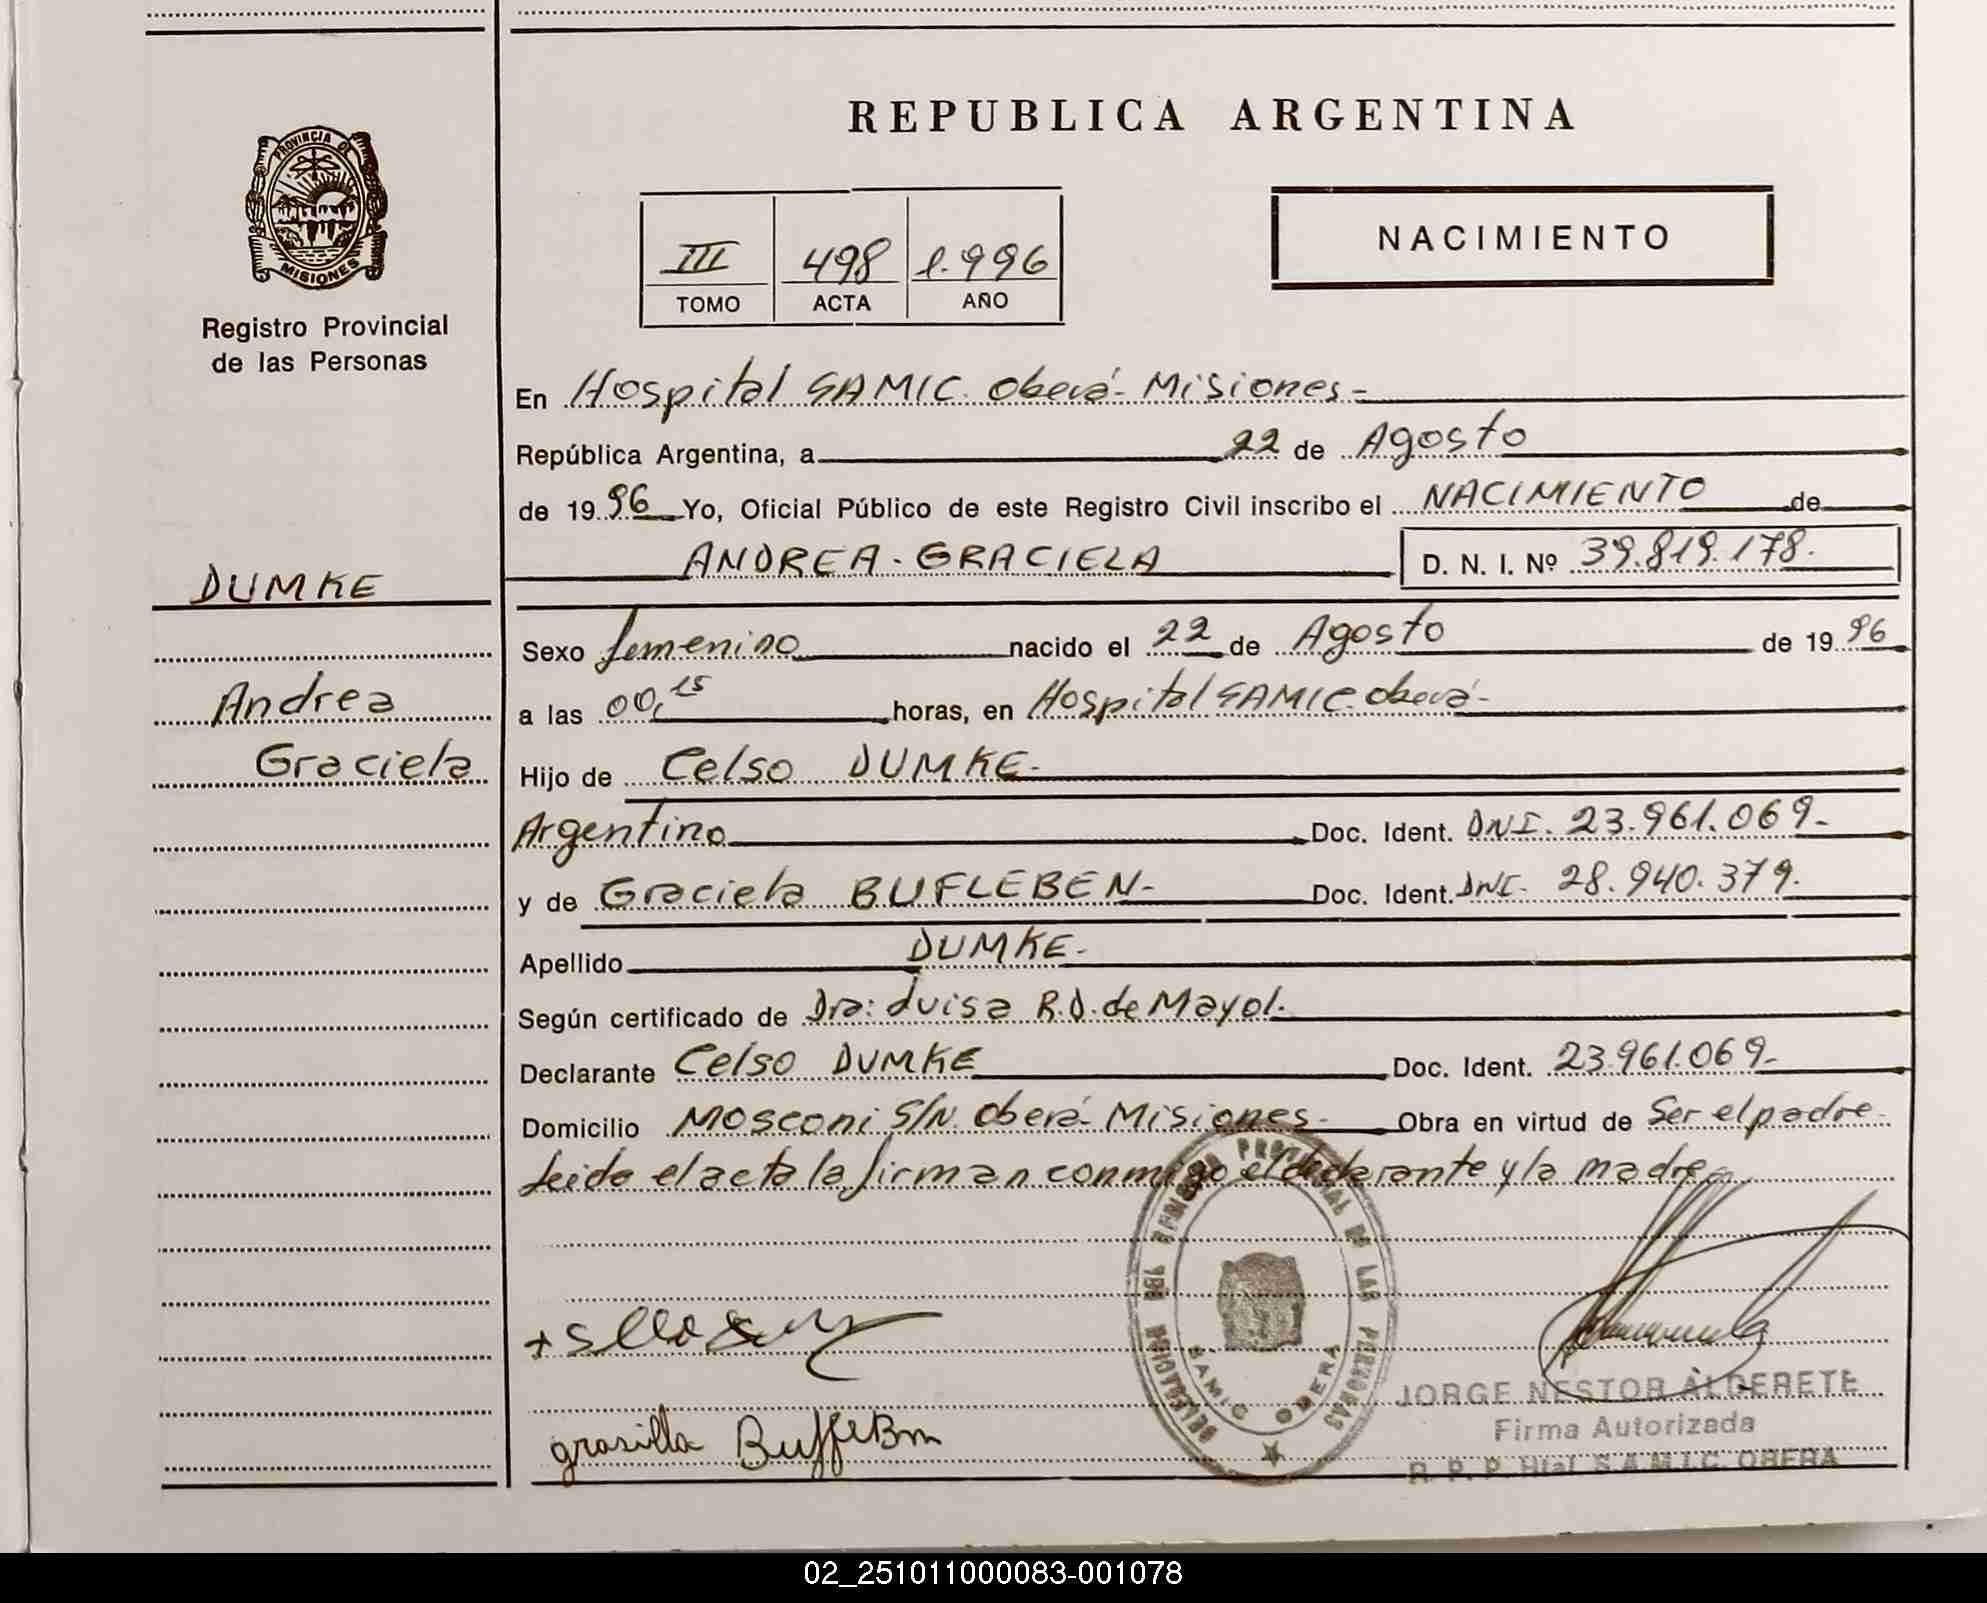 REPUBLICA ARGENTINA
PROVINCIA DE
MISIONES
Registro Provincial
de las Personas
III 498 1.996
TOMO ACTA AÑO
NACIMIENTO
En Hospital SAMIC. Oberá- Misiones-
República Argentina, a 22 de Agosto
de 1996 Yo, Oficial Público de este Registro Civil inscribo el NACIMIENTO de
ANDREA-GRACIELA D. N. I. Nº 39.819.178.
DUMKE
Andrea
Graciela
Sexo femenino nacido el 22 de Agosto de 1996
a las 00,15 horas, en Hospital SAMIC. Oberá-
Hijo de Celso DUMKE-
Argentino Doc. Ident. DNI. 23.961.069-
y de Graciela BUFLEBEN- Doc. Ident. DNI. 28.940.379.
Apellido DUMKE-
Según certificado de Dra: Luisa R.D. de Mayol.
Declarante Celso DUMKE Doc. Ident. 23.961.069-
Domicilio Mosconi S/N. Oberá- Misiones- Obra en virtud de Ser el padre-
Leida el acta la firman conmigo el declarante y la madre
DELEGACION DEL REGISTRO PROVINCIAL DE LAS PERSONAS
SAMIC OBERA
JORGE NESTOR ALDERETE
Firma Autorizada
R. P. P. Htal S.A.M.I.C. OBERA
02_251011000083-001078